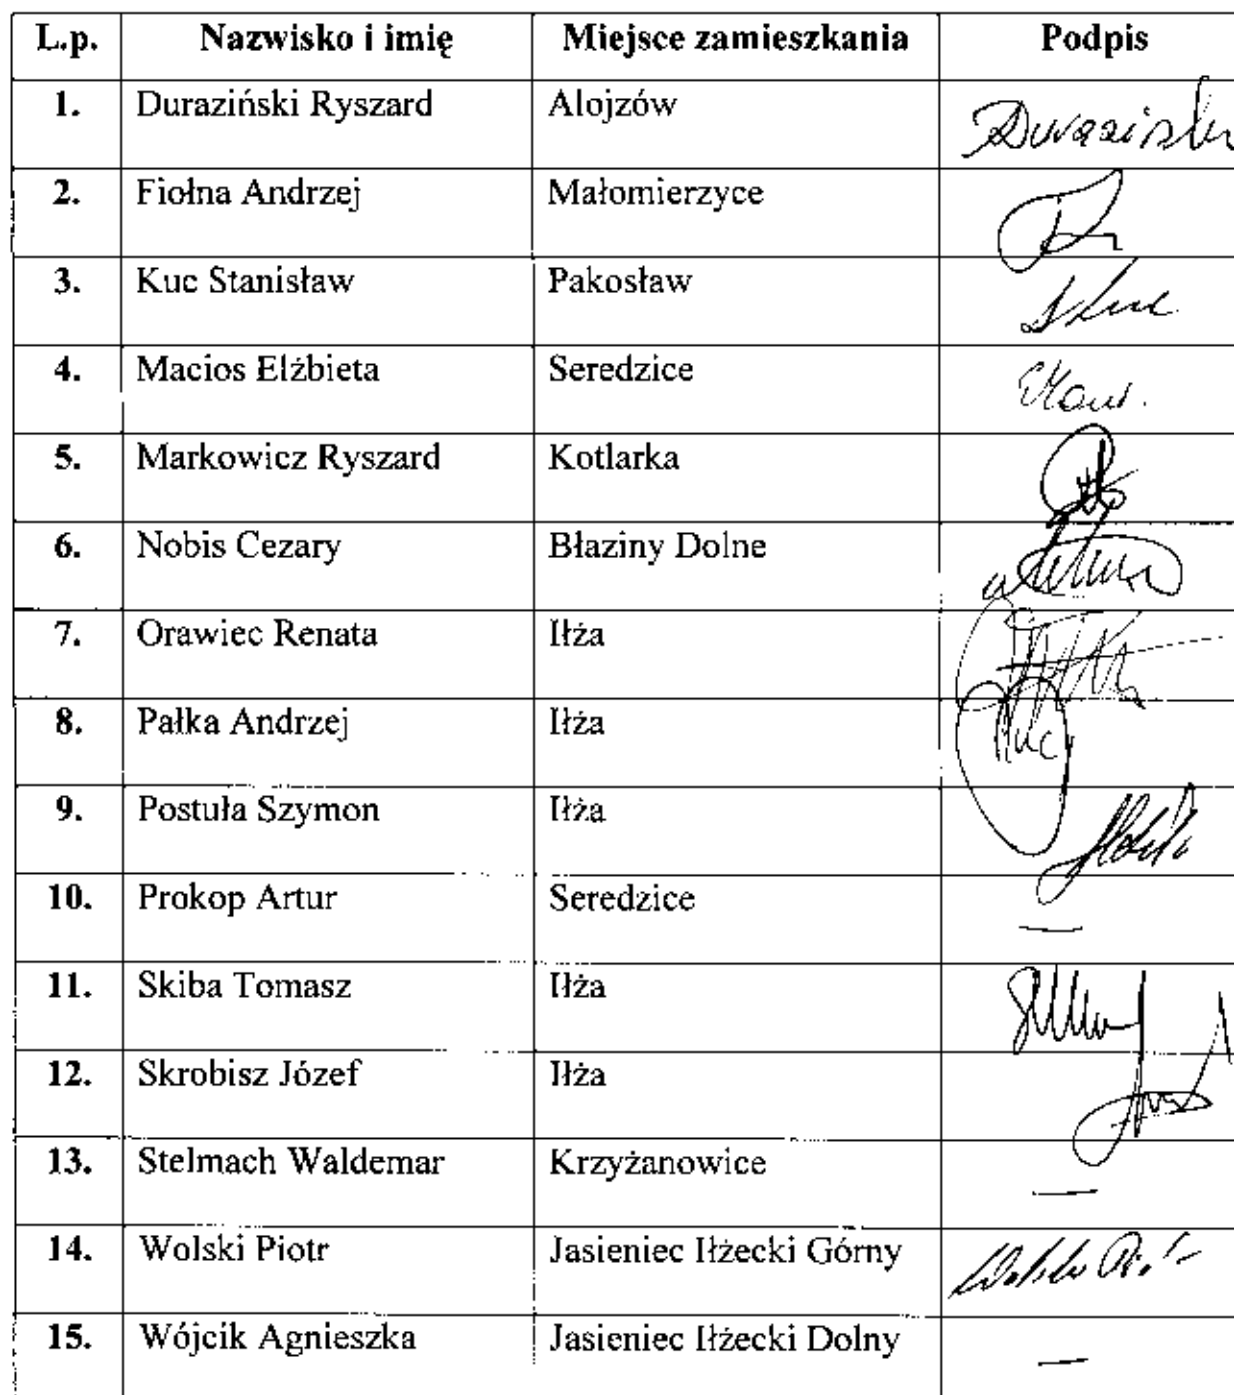 L.p. Nazwisko i imię Miejsce zamieszkania Podpis
1. Duraziński Ryszard Alojzów
2. Fiołna Andrzej Małomierzyce
3. Kuc Stanisław Pakosław
4. Macios Elżbieta Seredzice
5. Markowicz Ryszard Kotlarka
6. Nobis Cezary Błaziny Dolne
7. Orawiec Renata Iłża
8. Pałka Andrzej Iłża
9. Postuła Szymon Iłża
10. Prokop Artur Seredzice —
11. Skiba Tomasz Iłża
12. Skrobisz Józef Iłża
13. Stelmach Waldemar Krzyżanowice —
14. Wolski Piotr Jasieniec Iłżecki Górny
15. Wójcik Agnieszka Jasieniec Iłżecki Dolny —